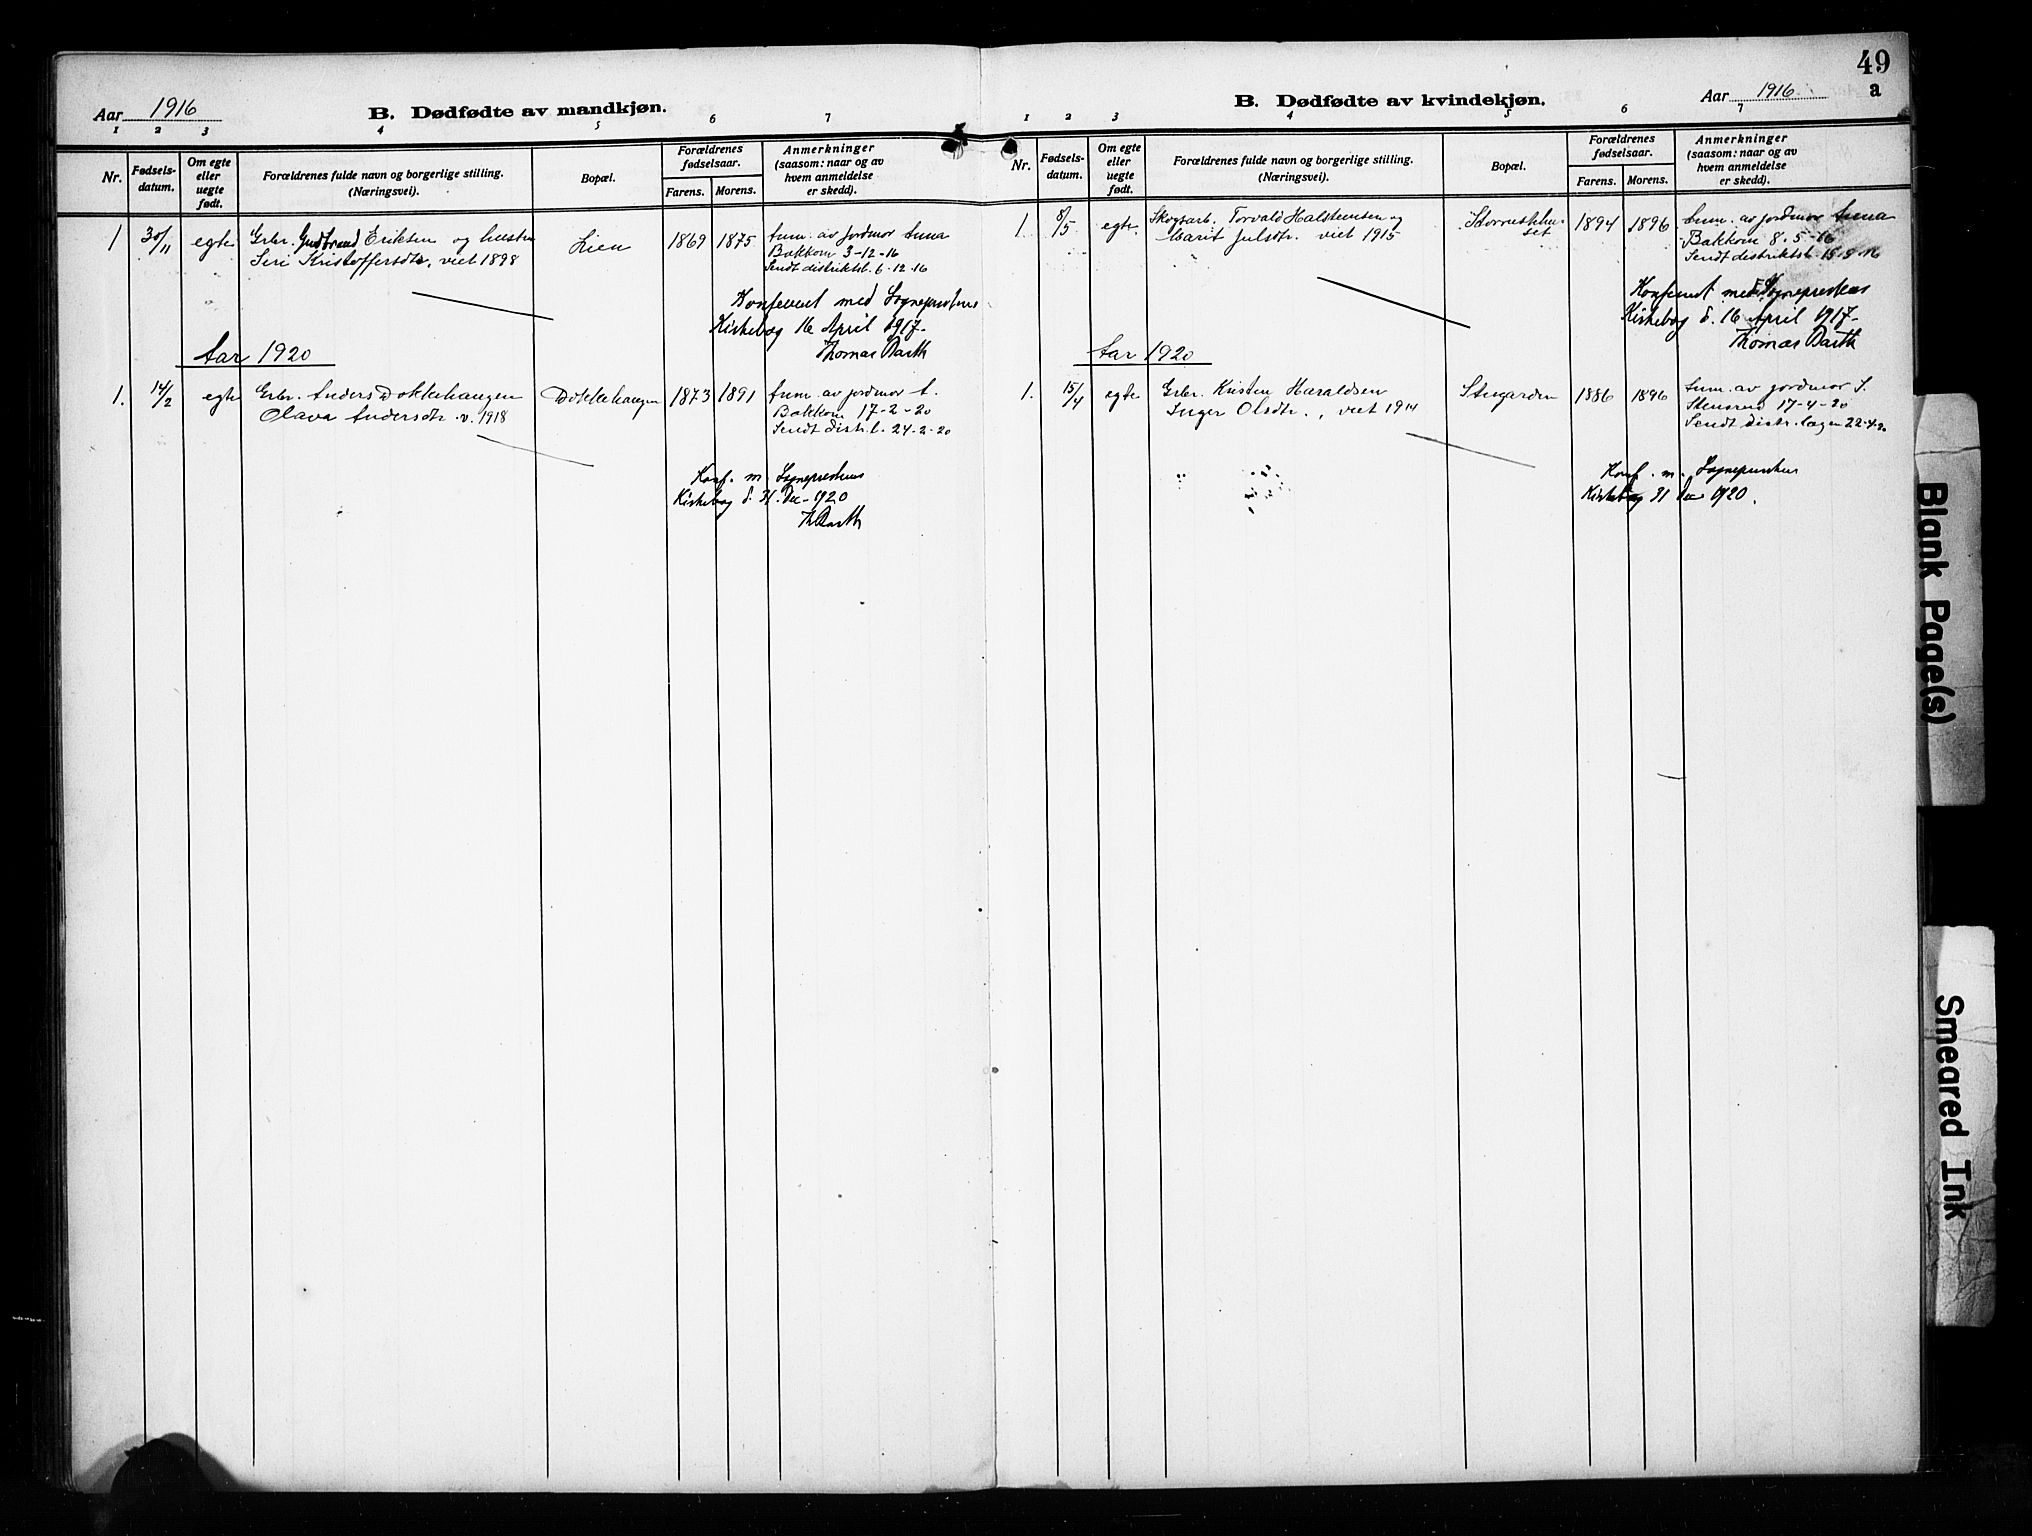 49
a
Aar 1916
B. Dødfødte av mandkjøn.
1 2 3 4 5 6 7
Nr.
Fødsels-
datum.
Om egte
eller
uegte
født.
Forældrenes fulde navn og borgerlige stilling.
(Næringsvei).
Bopæl.
Forældrenes
fødselsaar.
Farens. Morens.
Anmerkninger
(saasom: naar og av
hvem anmeldelse
er skedd).
1 30/11 egte Grbr. Gudbrand Eriksen og hustru Lien 1869 1875 Anm. av jordmor Anna
Siri Kristoffersdtr. viet 1898 Bakkom 3-12-16
Sendt distriktsl. 6-12-16
Konfereret med Sogneprestens
Kirkebog 16 April 1917-
Thomas Barth
Aar 1920
1. 14/2 egte Grbr. Anders Dokkehaugen Dokkehaugen 1873 1891 Anm. av jordmor A.
Olava Andersdtr. v. 1918 Bakkom 17-2-20
Sendt distr.l. 24-2-20
Konf. m. Sogneprestens
Kirkebog d. 31. Dec. 1920
Th Barth
B. Dødfødte av kvindekjøn.
Aar 1916
1 2 3 4 5 6 7
Nr.
Fødsels-
datum.
Om egte
eller
uegte
født.
Forældrenes fulde navn og borgerlige stilling.
(Næringsvei).
Bopæl.
Forældrenes
fødselsaar.
Farens. Morens.
Anmerkninger
(saasom: naar og av
hvem anmeldelse
er skedd).
1. 8/5 egte. Skogsarb. Torvald Halstensen og 1894 1896 Anm. av jordmor Anna
Marit Julsdtr. viet 1915 Bakkom 8-5-16
Sendt distriktsl.
Konfereret med Sogneprestens
Kirkebog d. 16 April 1917-
Thomas Barth
Aar 1920
1. 15/4 egte Grbr. Kristen Haraldsen Stugarden 1886 1896 Anm. av jordmor S.
Inger Olsdtr., viet 1914 Stensrud 17-4-20
Sendt distr. lægen 22-4-20
Konf. m. Sogneprestens
Kirkebog 31 Dec 1920.
Blank Page(s)
Smeared Ink